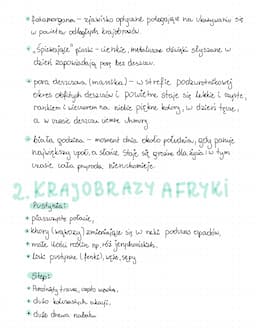 • fatamorgana – zjawisko optyczne polegające na ukazywaniu się
w powietrzu odległych krajobrazów.
• „Śpiewające” piaski – cienkie, metaliczne dźwięki słyszane w
dzień zapowiadają porę bez deszczu.
• pora deszczowa (mauka) – w strefie podzwrotnikowej
okres obfitych deszczów i powietrze staje się lekkie i czyste,
rankiem i wieczorem na niebie piękne kolory, w dzień tęcze,
a w czasie deszczu ciemne chmury
• biała godzina – moment dnia około południa, gdy panuje
największy upał, a słońce staje się groźne dla życia i w tym
czasie cała przyroda nieruchomieje.
2. KRAJOBRAZY AFRYKI
Pustynia:
• piaszczyste połacie,
• khory (wąwozy) zmieniające się w rzeki podczas opadów,
• mała ilość roślin np. róż jerychońskich,
• liski pustynne (fenki), węże, sępy
Step:
• Porośnięty trawą, często wysoką,
• dużo kolczastych akacji,
• dużo drzew nabaku